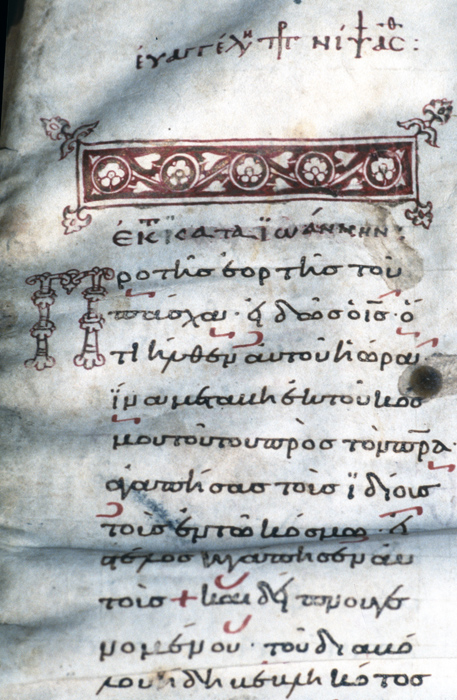 ἐυαγγέλι
ἐκ τ κατα ϊωάννην:
Προ τῆσ ἑορτῆσ τοῦ
πάσχα · εἰδὼσ ὁ ἰσ · ὅ
τι ἦλθεν αὐτοῦ ἡ ὥρα
ϊνα μεταβῆ ἐκ τοῦ κοσ
μου τούτου πρὸσ τὸν πρα ·
ἀγαπήσασ τοὺσ ϊδίουσ
τοὺσ ἐν τῶ κόσμω · εἰσ
τέλοσ ἠγάπησεν αὐ
τούσ + καὶ δείπνου γε
νομένου · τοῦ διαβό
λου ἤδη βεβληκότοσ